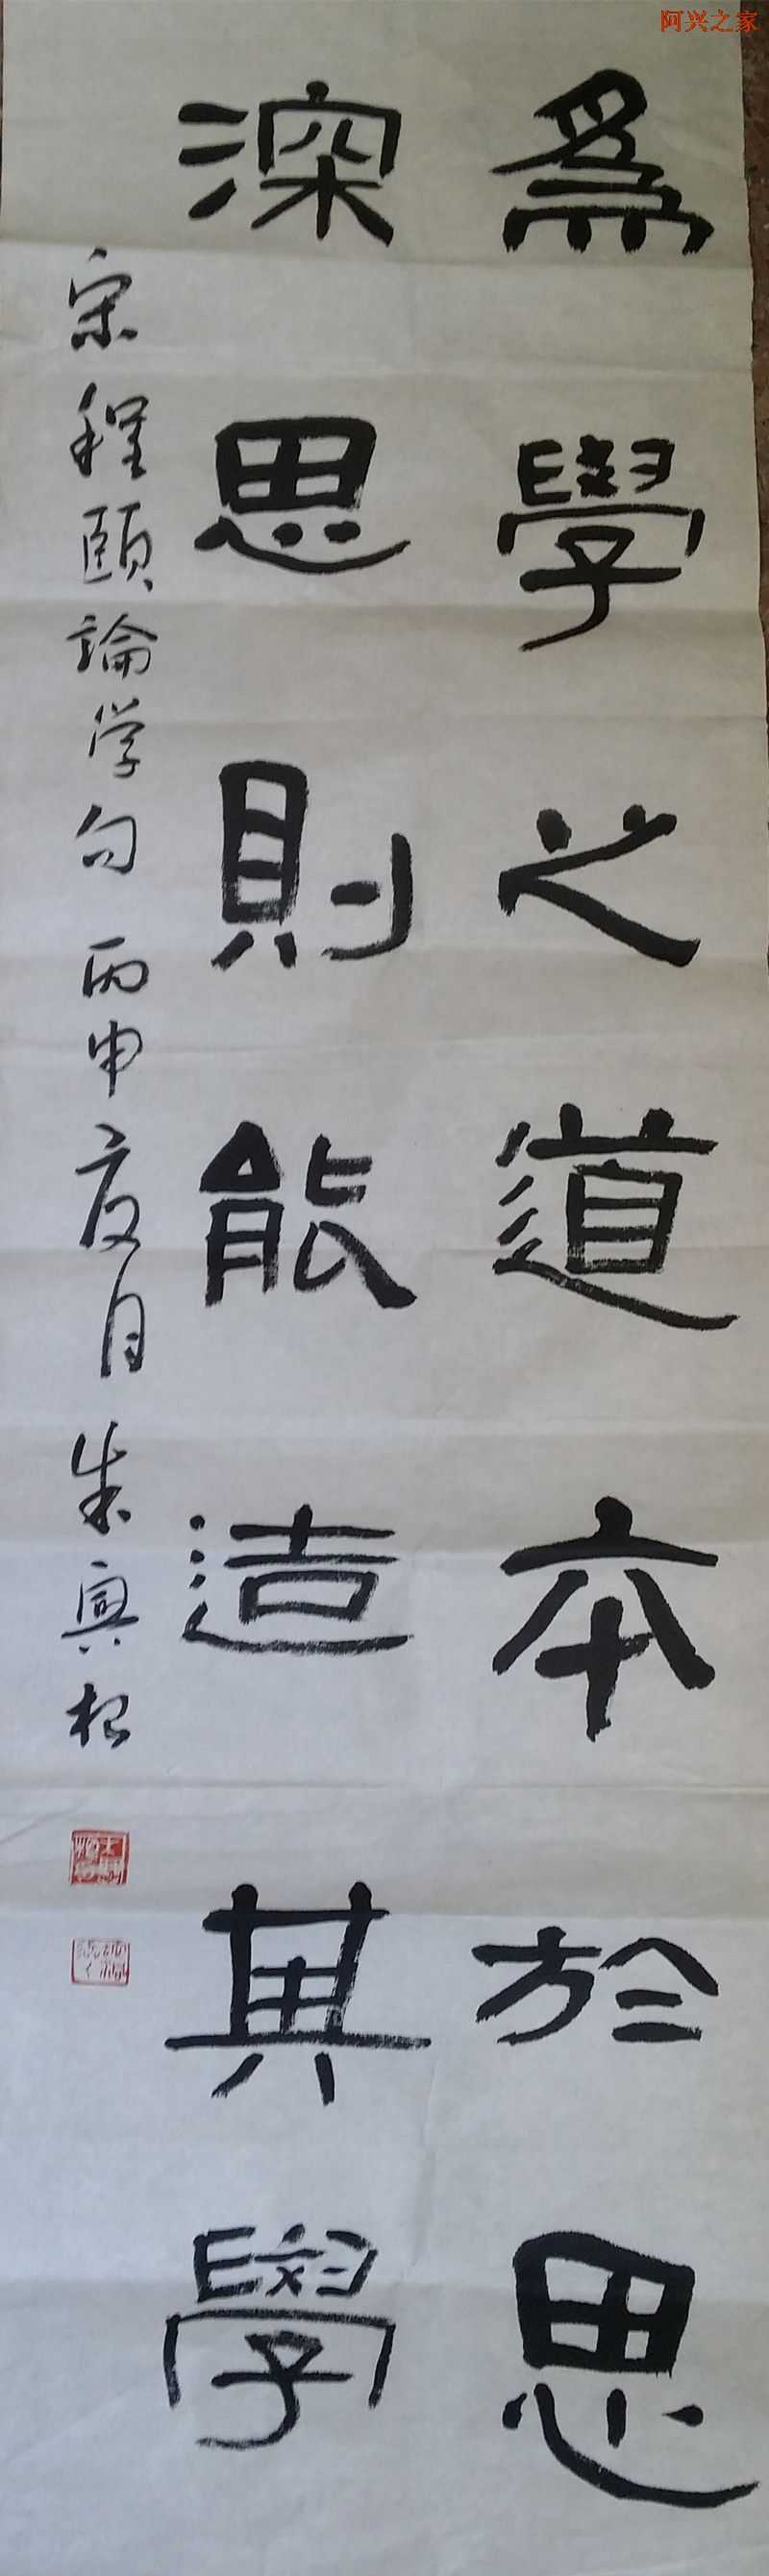 阿兴之家
為學之道本於思
深思則能造其學
宋程頤論学句 丙申夏月 朱興根